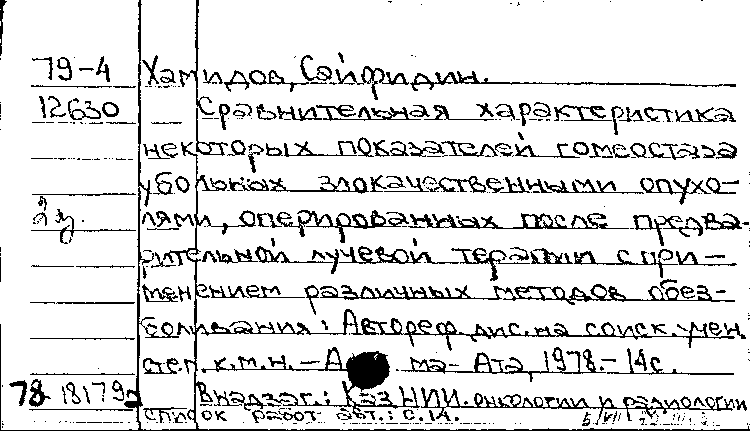 79-4 Хамидов, Сайфидин.
12630 Сравнительная характеристика
некоторых показателей гомеостаза
у больных злокачественными опухо-
2 э. лями, оперированных после предва-
рительной лучевой терапии с при-
менением различных методов обез-
боливания: Автореф. дис. на соиск. учен.
степ. к.м.н. - А ма-Ата, 1978. - 14с.
78-18179а В надзаг.: Каз.НИИ. онкологии и радиологии
Список работ авт.: с. 14.